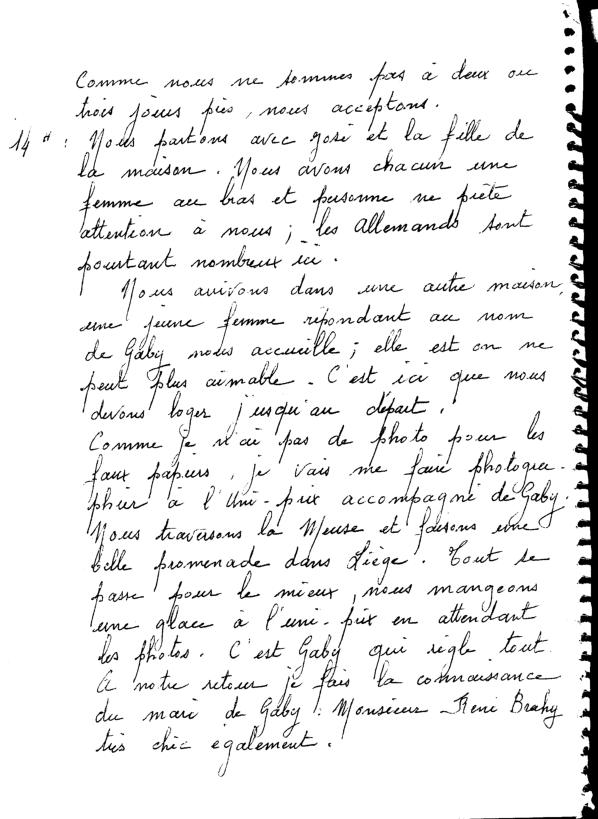 Comme nous ne sommes pas à deux ou
trois jours près, nous acceptons.
14 : Nous partons avec José et la fille de
la maison. Nous avons chacun une
femme au bras et personne ne prête
attention à nous ; les Allemands sont
pourtant nombreux ici.
Nous arrivons dans une autre maison,
une jeune femme répondant au nom
de Gaby nous accueille ; elle est on ne
peut plus aimable. C'est ici que nous
devons loger jusqu'au départ.
Comme je n'ai pas de photo pour les
faux papiers, je vais me faire photogra-
phier à l'Uni-prix accompagné de Gaby.
Nous traversons la Meuse et faisons une
belle promenade dans Liège. Tout se
passe pour le mieux, nous mangeons
une glace à l'uni-prix en attendant
les photos. C'est Gaby qui règle tout.
A notre retour je fais la connaissance
du mari de Gaby : Monsieur René Brahy
très chic egalement.